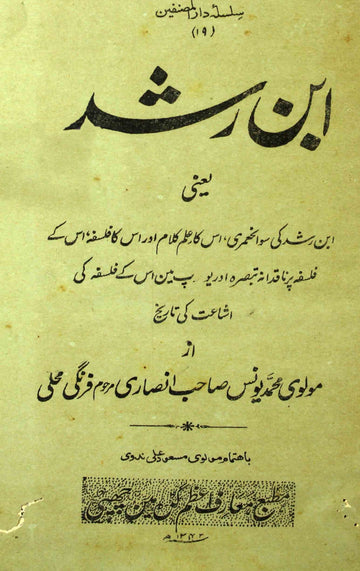 سلسلۂ دار المصنفین
(۱۹)
ابن رشد
یعنی
ابن رشد کی سوانحعمری، اس کا علم کلام اور اس کا فلسفہ، اس کے
فلسفہ پر ناقدانہ تبصرہ اور یورپ مین اس کے فلسفہ کی
اشاعت کی تاریخ
از
مولوی محمد یونس صاحب انصاری مرحوم فرنگی محلی
باہتمام مولوی مسعود علی ندوی
مطبع معارف اعظم گڑھ مین چھپی
۱۳۴۲ھ